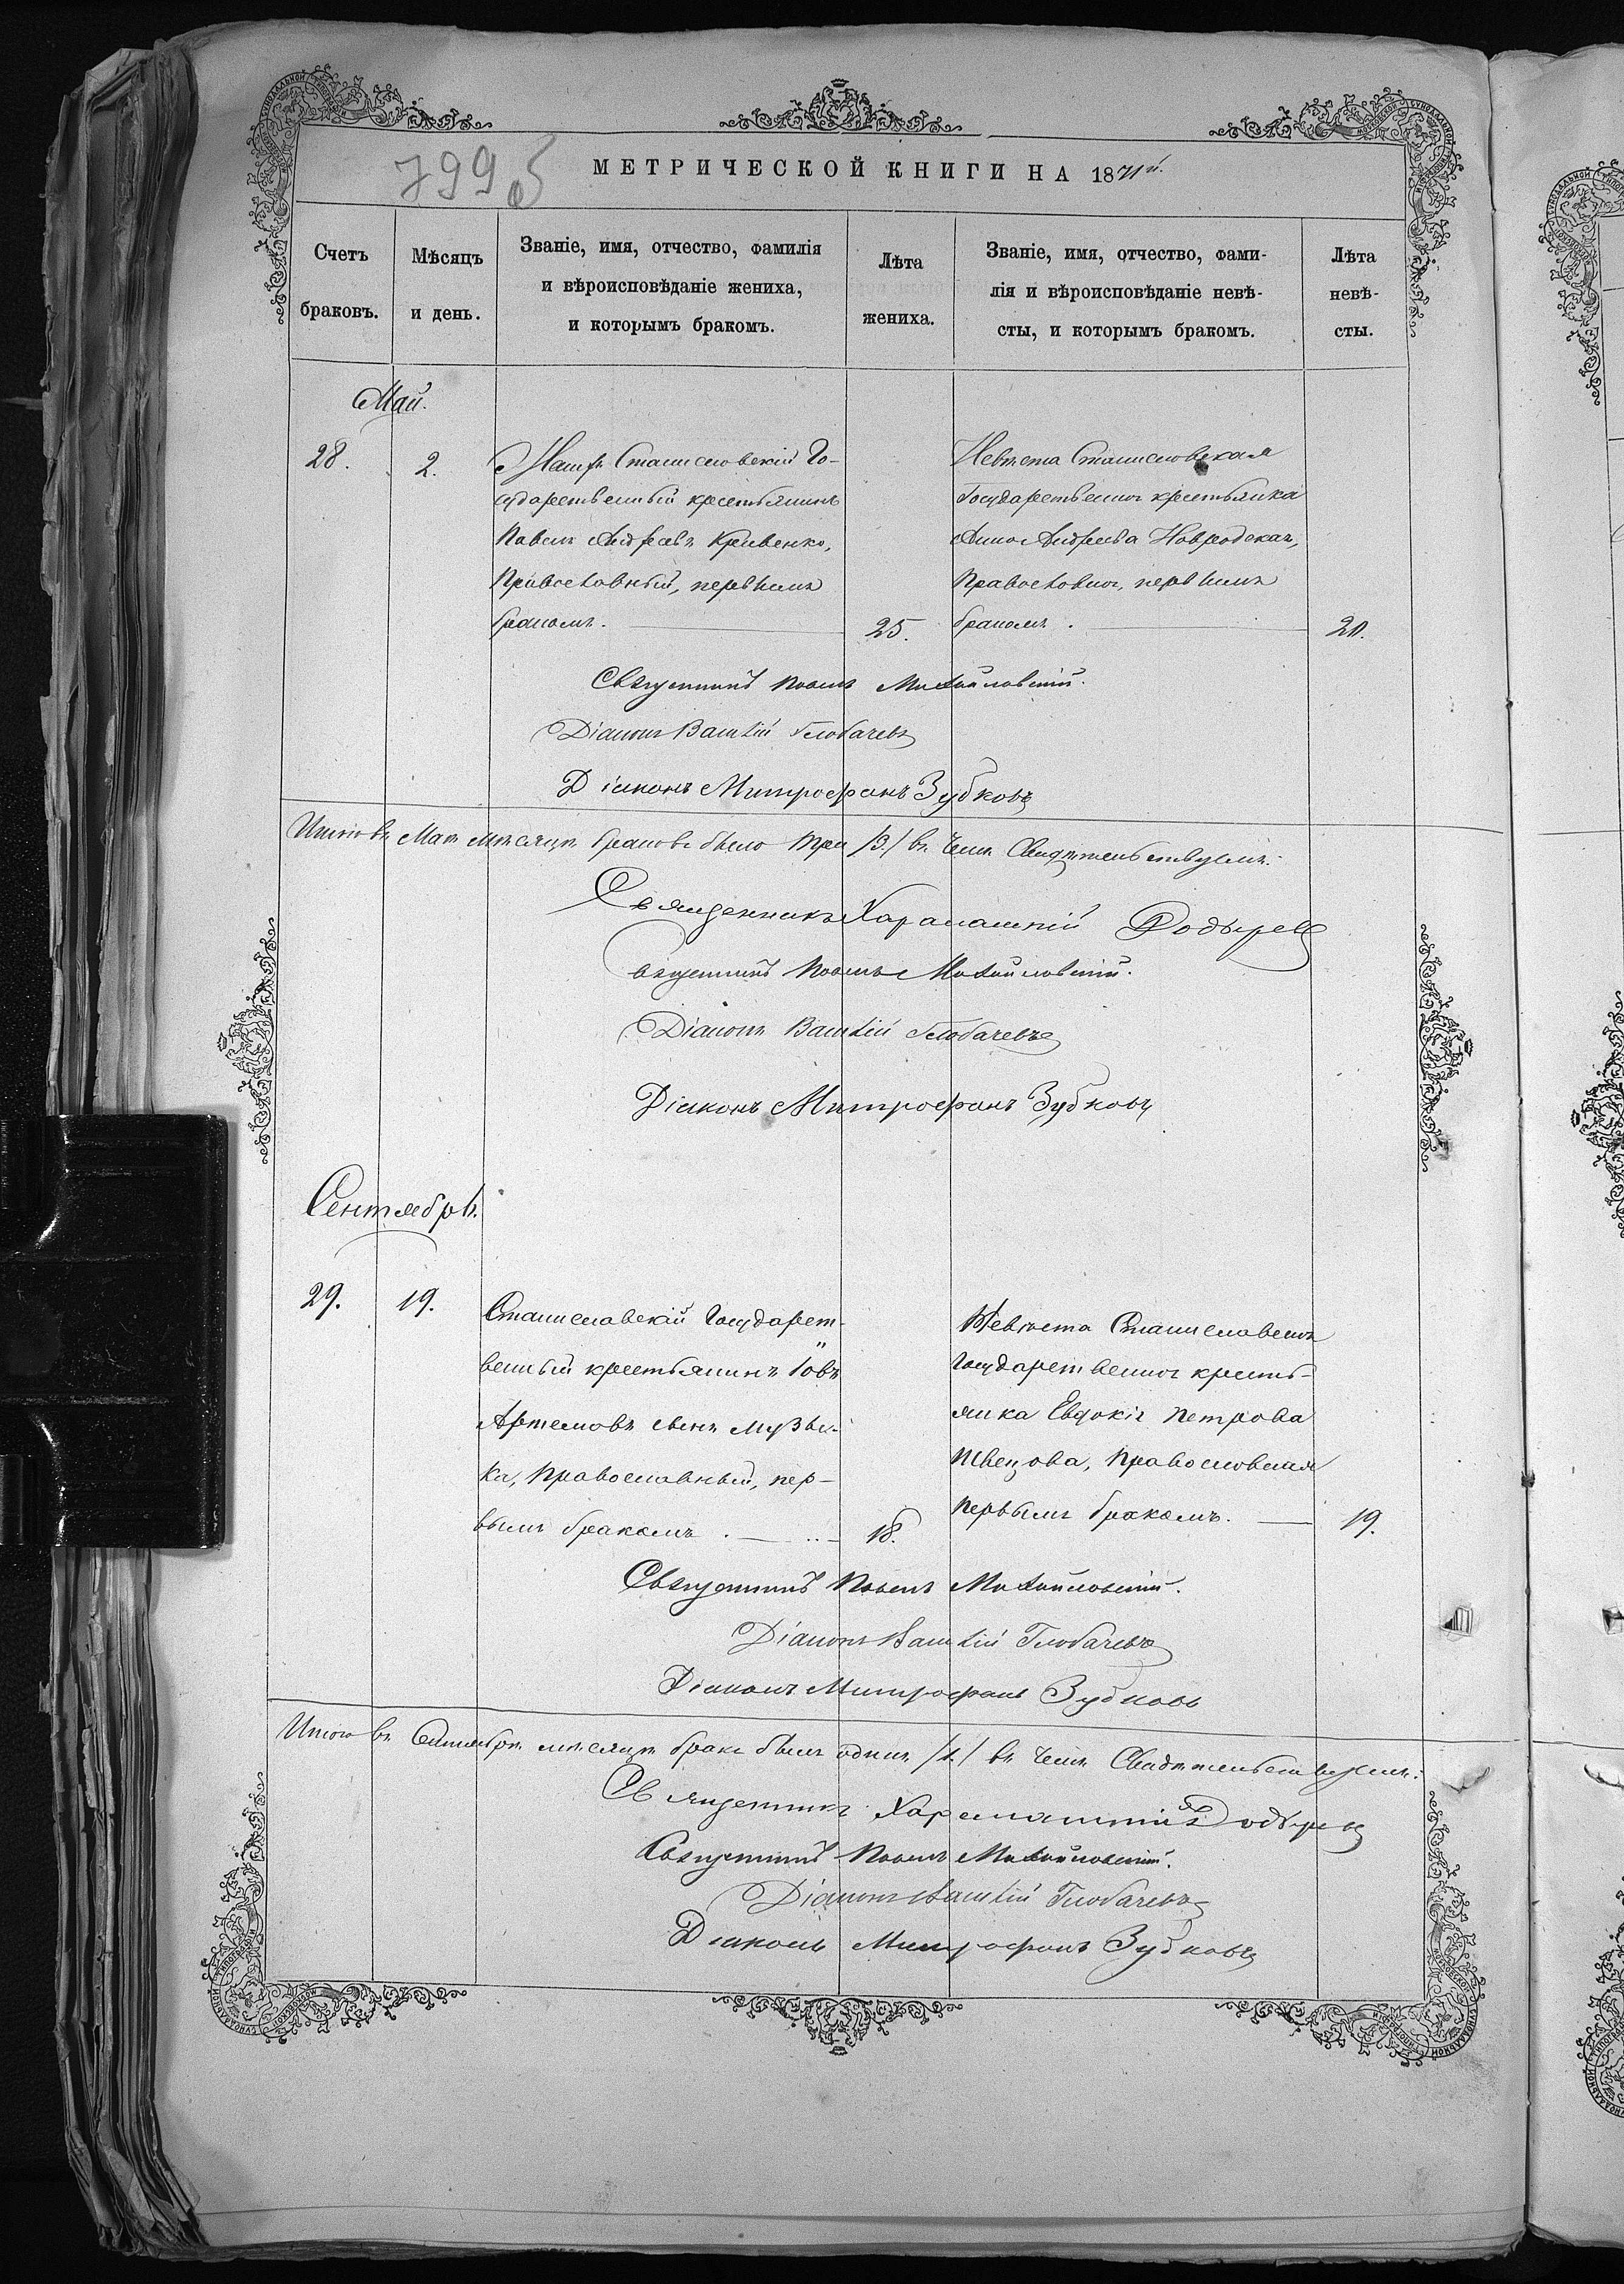 799 об
МЕТРИЧЕСКОЙ КНИГИ НА 1871й.
Счетъ браковъ.
Мѣсяцъ и день.
Званіе, имя, отчество, фамилія
и вѣроисповѣданіе жениха,
и которымъ бракомъ.
Лѣта жениха.
Званіе, имя, отчество, фами-
лія и вѣроисповѣданіе невѣ-
сты, и которымъ бракомъ.
Лѣта невѣ-
сты.
Май.
28.
2.
Станисловскій Го-
сударственный крестьянинъ
Павелъ Андреевъ Кривенко,
Православный, первымъ
бракомъ.
25.
Невѣста Станисловская
Государственная крестьянка
Анна Андреева
Православная, первымъ
бракомъ.
20.
Священникъ Павелъ Михайловскій.
Діаконъ Василій Глобачевъ
Діаконъ Митрофанъ Зубковъ
Итого въ Маѣ мѣсяцѣ браковъ было три /3./ въ чемъ Свидѣтельствуемъ:
Священникъ Харалампій
Священникъ Павелъ Михайловскій.
Діаконъ Василій Глобачевъ
Діаконъ Митрофанъ Зубковъ
Сентябрь.
29.
19.
Станиславскій Государст-
венный крестьянинъ Іовъ
Артемовъ сынъ Музы-
ка, Православный, пер-
вымъ бракомъ.
18.
Невѣста Станиславская
Государственная кресть-
янка Евдокія Петрова
Швецова, Православная
первымъ бракомъ.
19.
Священникъ Павелъ Михайловскій.
Діаконъ Василій Глобачевъ
Діаконъ Митрофанъ Зубковъ
Итого въ Сентябрѣ мѣсяцѣ бракъ былъ одинъ /1./ въ чемъ Свидѣтельствуемъ:
Священникъ Харалампій
Священникъ Павелъ Михайловскій.
Діаконъ Василій Глобачевъ
Діаконъ Митрофанъ Зубковъ